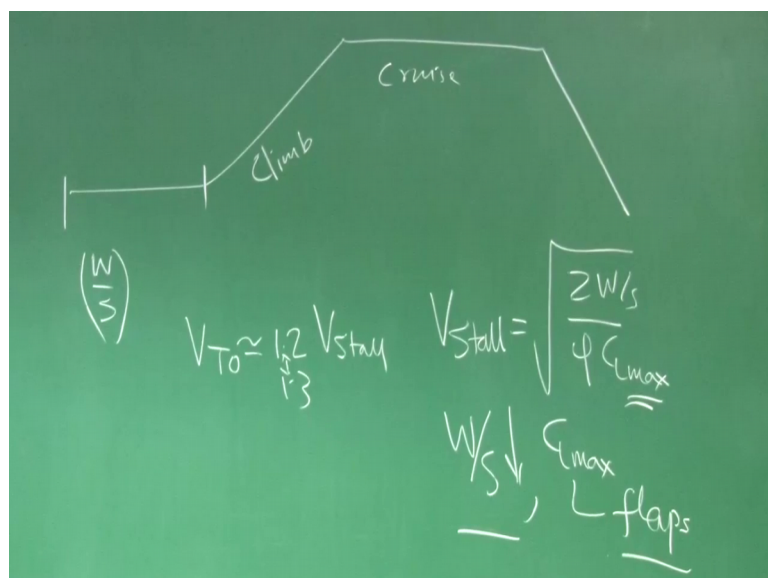 Cruise
Climb
(W/S)
V_TO ≃ 1.2 V_Stall
1.3
V_Stall = √(2W/S / ρ C_Lmax)
W/S ↓, C_Lmax
flaps